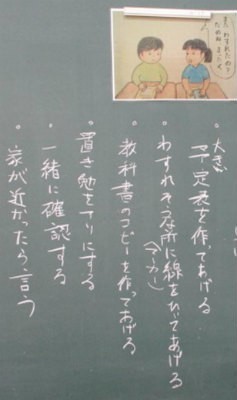 予定表を作ってあげる
わすれそうな所に線をひいてあげる
(マーカー)
教科書のコピーを作ってあげる
置き勉をアリにする
一緒に確認する
家が近かったら言う